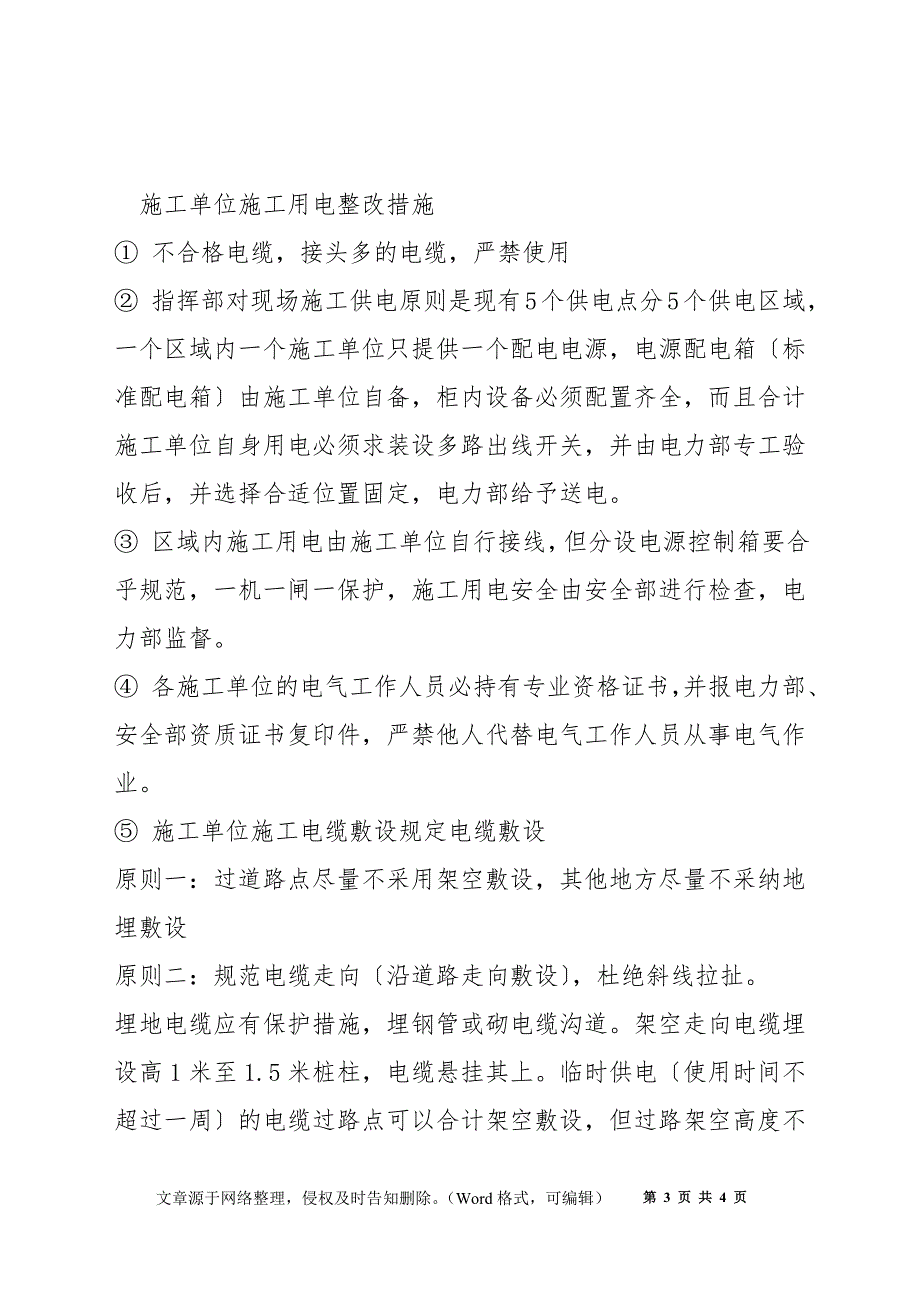 施工单位施工用电整改措施
① 不合格电缆，接头多的电缆，严禁使用
② 指挥部对现场施工供电原则是现有5个供电点分5个供电区域，
一个区域内一个施工单位只提供一个配电电源，电源配电箱〔标
准配电箱〕由施工单位自备，柜内设备必须配置齐全，而且合计
施工单位自身用电必须求装设多路出线开关，并由电力部专工验
收后，并选择合适位置固定，电力部给予送电。
③ 区域内施工用电由施工单位自行接线，但分设电源控制箱要合
乎规范，一机一闸一保护，施工用电安全由安全部进行检查，电
力部监督。
④ 各施工单位的电气工作人员必持有专业资格证书，并报电力部、
安全部资质证书复印件，严禁他人代替电气工作人员从事电气作
业。
⑤ 施工单位施工电缆敷设规定电缆敷设
原则一：过道路点尽量不采用架空敷设，其他地方尽量不采纳地
埋敷设
原则二：规范电缆走向〔沿道路走向敷设〕，杜绝斜线拉扯。
埋地电缆应有保护措施，埋钢管或砌电缆沟道。架空走向电缆埋
设高1米至1.5米桩柱，电缆悬挂其上。临时供电〔使用时间不
超过一周〕的电缆过路点可以合计架空敷设，但过路架空高度不
文章源于网络整理，侵权及时告知删除。（Word格式，可编辑） 第 3 页 共 4 页